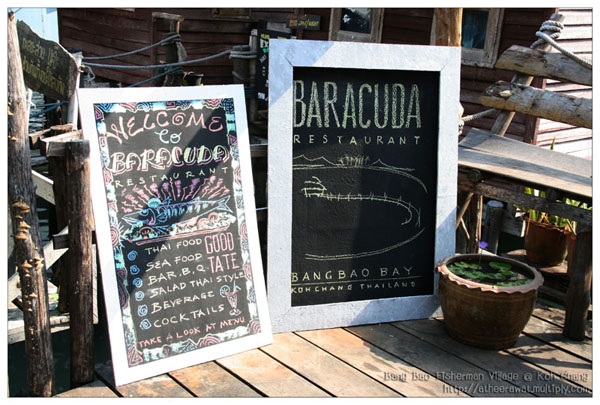 WELCOME
to
BARACUDA
RESTAURANT
THAI FOOD
SEA FOOD
BAR.B.Q
GOOD
TATE
SALAD THAI STYLE
BEVERAGE
COCKTAILS
TAKE A LOOK AT MENU
BARACUDA
RESTAURANT
BANGBAO BAY
KOHCHANG THAILAND
Bang Bao Fisherman Village @ Koh Chang
http://atheerawat.multiply.com